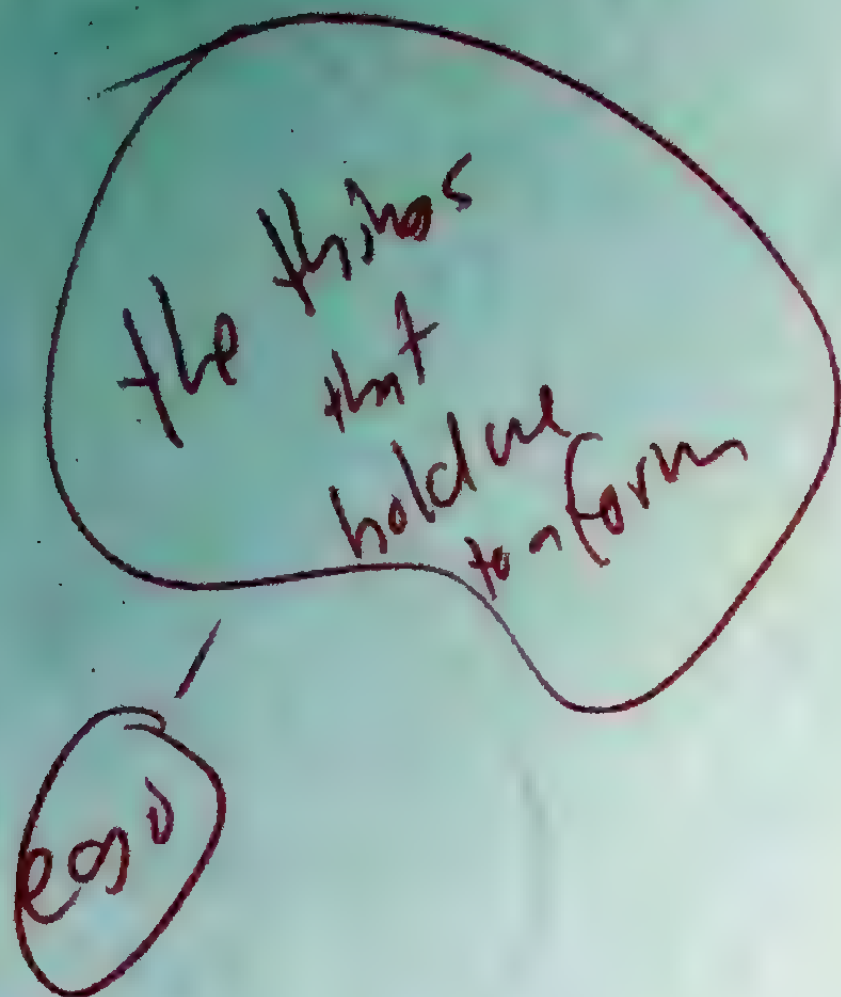 the things
that
hold me
to a form
ego